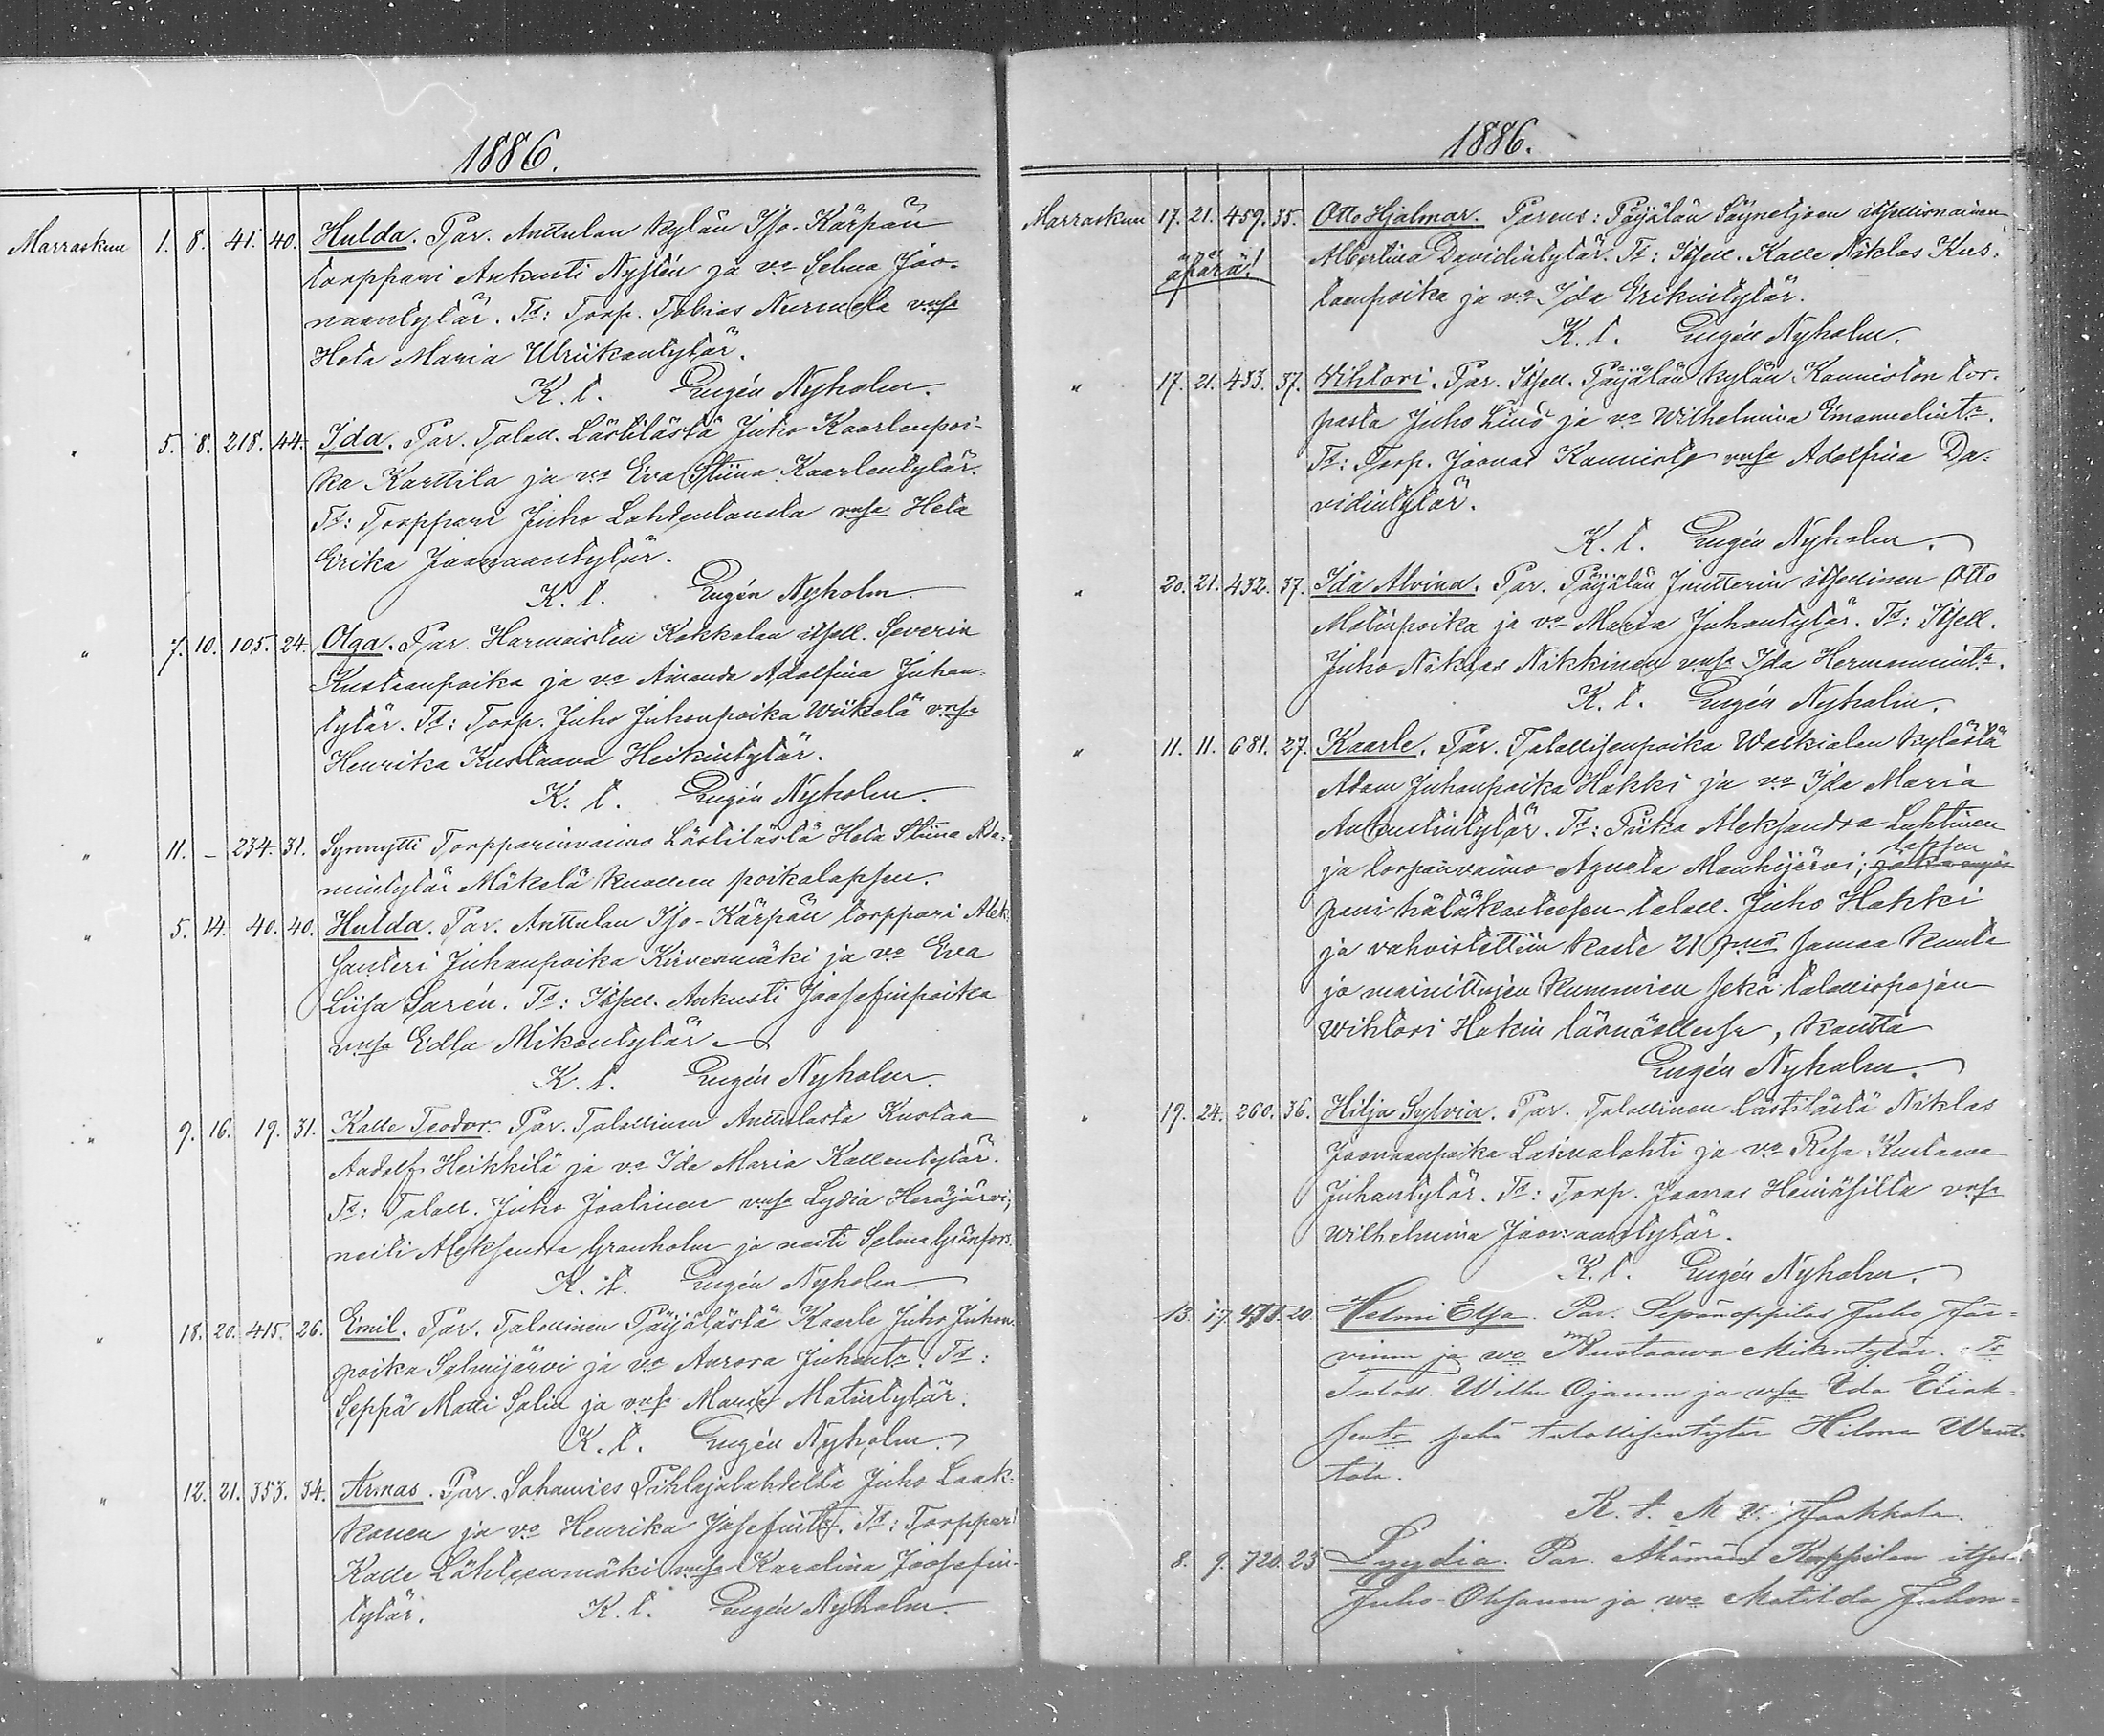 1886.
Marraskuu 1. 8. 41. 40. Hulda. Par. Anttulan kylän Iso-Kärpän
torppari Aukusti Nystén ja vo Selma Joo-
naantytär. Td: Torp. Tobias Nurmela vnsa
Heta Maria Ulriikantytär.
K. t. Eugén Nyholm.
" 5. 8. 218. 44. Ida. Par. Talall. Lästilästä Juho Kaarlenpoi-
ka Karttila ja vo Eva Stiina Kaarlentytär.
Td: Torppari Juho Lahdentausta vnsa Heta
Erika Joonaantytär.
K. t. Eugén Nyholm.
" 7. 10. 105. 24. Olga. Par. Harmoisten Kokkolan itsell. Severin
Kustaanpoika ja vo Amanda Adolfina Juhan-
tytär. Td: Torp. Juho Juhonpoika Wiikelä vnsa
Henrika Kustaava Heikintytär.
K. t. Eugén Nyholm.
" 11. - 234. 31. Synnytti Torpparinvaimo Lästilästä Heta Stiina Ada-
mintytär Mäkelä kuolleen poikalapsen.
" 5. 14. 40. 40. Hulda. Par. Anttulan Iso-Kärpän torppari Alek-
santeri Juhanpoika Kirvesmäki ja vo Eva
Liisa Sarén. Td: Itsell. Aukusti Joosefinpoika
vnsa Edla Mikontytär
K. t. Eugén Nyholm.
" 9. 16. 19. 31. Kalle Teodor. Par. Talollinen Anttulasta Kustaa
Aadolf Heikkilä ja vo Ida Maria Kallentytär.
Td: Talall. Juho Jaalinen vnsa Lydia Heräjärvi;
neiti Aleksandra Granholm ja neiti Selma Grönfors.
K. t. Eugén Nyholm
" 18. 20. 415. 26. Emil. Par. Talollinen Päijälästä Kaarle Juho Juhon-
poika Salmijärvi ja vo Aurora Juhantr. Td:
Seppä Matti Salin ja vnsa Maria Matintytär.
K. t. Eugén Nyholm.
" 12. 21. 353. 34. Armas. Par. Sahamies Pihlajalahdelta Juho Laak-
konen ja vo Henrika Josefintr. Td: Torppari
Kalle Lähteenmäki vnsa Karolina Joosefin-
tytär. K. t. Eugén Nyholm.
1886.
Marraskuu 17. 21. 459. 35. Otto Hjalmar. Parens: Päijälän Säynetjoen itsellisnainen
äpärä! Albertina Davidintytär. Td: Itsell. Kalle Niklas Kus-
taanpoika ja vo Ida Erikintytär.
K. t. Eugén Nyholm.
" 17. 21. 433. 37. Vihtori. Par. Itsell. Päijälän kylän Kanniston tor-
pasta Juho Lind ja vo Wilhelmina Emanuelintr.
Td: Torp. Joonas Kannisto vnsa Adolfina Da-
vidintytär.
K. t. Eugén Nyholm.
" 20. 21. 432. 37. Ida Alvina. Par. Päijälän Junttorin itsellinen Otto
Matinpoika ja vo Maria Juhantytär. Td: Itsell.
Juho Niklas Nikkinen vnsa Ida Hermannintr.
K. t. Eugén Nyholm.
" 11. 11. 681. 27. Kaarle. Par. Talollisenpoika Walkialan kylästä
Adam Juhanpoika Hakki ja vo Ida Maria
Aukustintytär. Td: Piika Aleksandra Lahtinen
ja torpanvaimo Agneta Mankijärvi; lapsen
pani hätäkasteesen talall. Juho Hakki
ja vahvistettiin kaste 21 pnä samaa kuuta
ja mainittujen kummien sekä talollispojan
Wihtori Hakin läsnäollessa, kautta
Eugén Nyholm.
" 19. 24. 260. 36. Hilja Sylvia. Par. Talollinen Lästilästä Niklas
Joonaanpoika Laknalahti ja vo Resa Kustaava
Juhantytär. Td: Torp. Joonas Heinäsilta vnsa
Wilhelmina Joonaantytär.
K. t. Eugén Nyholm.
13. 17. 20 Helmi Elsa. Par. Sepänoppilas Juho Jär-
vinen ja wo Kustaawa Mikontytär. Td
Talall. Wilh. Ojanen ja vsa Ida Eliak-
sentr sekä talollisentytär Hilma Want-
tola.
K. t. M. V. Jaakkola.
8. 9. 720. 23 Lyydia. Par. Akämän Karppilan itsell.
Juho Oksanen ja wo Matilda Juhon-